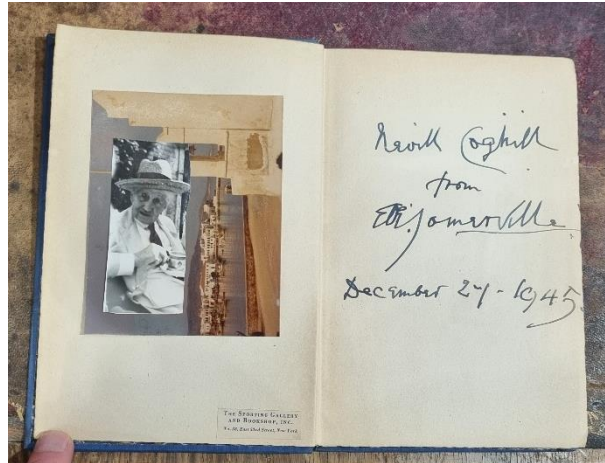 THE SPORTING GALLERY
AND BOOKSHOP, INC.
No. 38, East 52nd Street, New York
Nevill Coghill
from
E.Œ. Somerville
December 27 - 1945